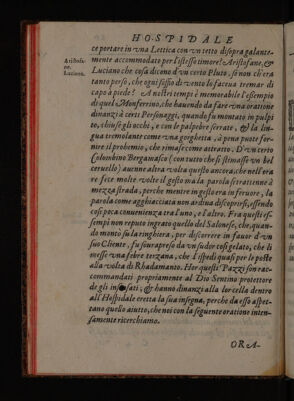 HOSPIDALE
ce portare in vna Lettica con vn tetto disopra galante-
mente accommodato per l'istesso timore? Aristofane, &
Luciano che cosa dicono d'vn certo Pluto, se non ch'era
tanto perso, che ogni soffio di vento lo faceua tremar di
capo à piede? A nostri tempi è memorabile l'essempio
di quel Monferrino, che hauendo da fare vna oratione
dinanzi à certi Personaggi, quando fu montato in pulpi
to, chiuse gli occhi, e con le palpebre serrate, & la lin-
gua tremolante come vna gorghetta, à pena puote for-
nire il prohemio, che rimase come attratto. D'vn certo
Colombino Bergamasco (con tutto che si stimasse vn bel
ceruello) auenne altra volta questo ancora, che nell'ora
re fece molte volte il gesto ma la parola se ritratenne à
mezza strada, perche mentre in gesto era in feruore, la
parola come agghiacciata non ardiua discoprirsi, essendo
cosi poca conuenienza tra l'uno, e l'altro. Fra questi es-
sempi non reputo ingrato quello del Salonese, che, quan-
do montò su la ringhiera, per discorrere in fauor d'vn
suo Cliente, fu sourapreso da vn sudor cosi gelato, che li
messe vna febre terzana, che l'ispedì quasi per le poste
alla volta di Rhadamanto. Hor questi Pazzi son rac-
commandati propriamente al Dio Sentino protettore
de gli insensati; & hanno dinanzi alla lor cella dentro
all'Hospidale eretta la sua insegna, perche da esso aspet-
tano quello aiuto, che noi con la seguente oratione inten-
samente ricerchiamo.
ORA-
Aristofa-
ne.
Luciano.